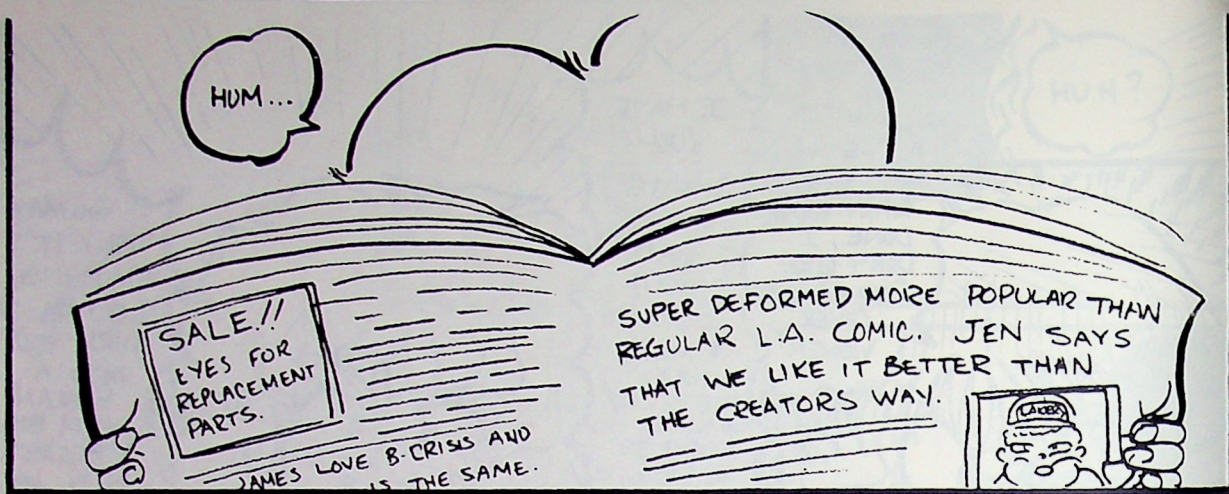 HUM...
SALE!!
EYES FOR
REPLACEMENT
PARTS.
JAMES LOVE B-CRISIS AND
IS THE SAME.
SUPER DEFORMED MORE POPULAR THAN
REGULAR L.A. COMIC. JEN SAYS
THAT WE LIKE IT BETTER THAN
THE CREATORS WAY.